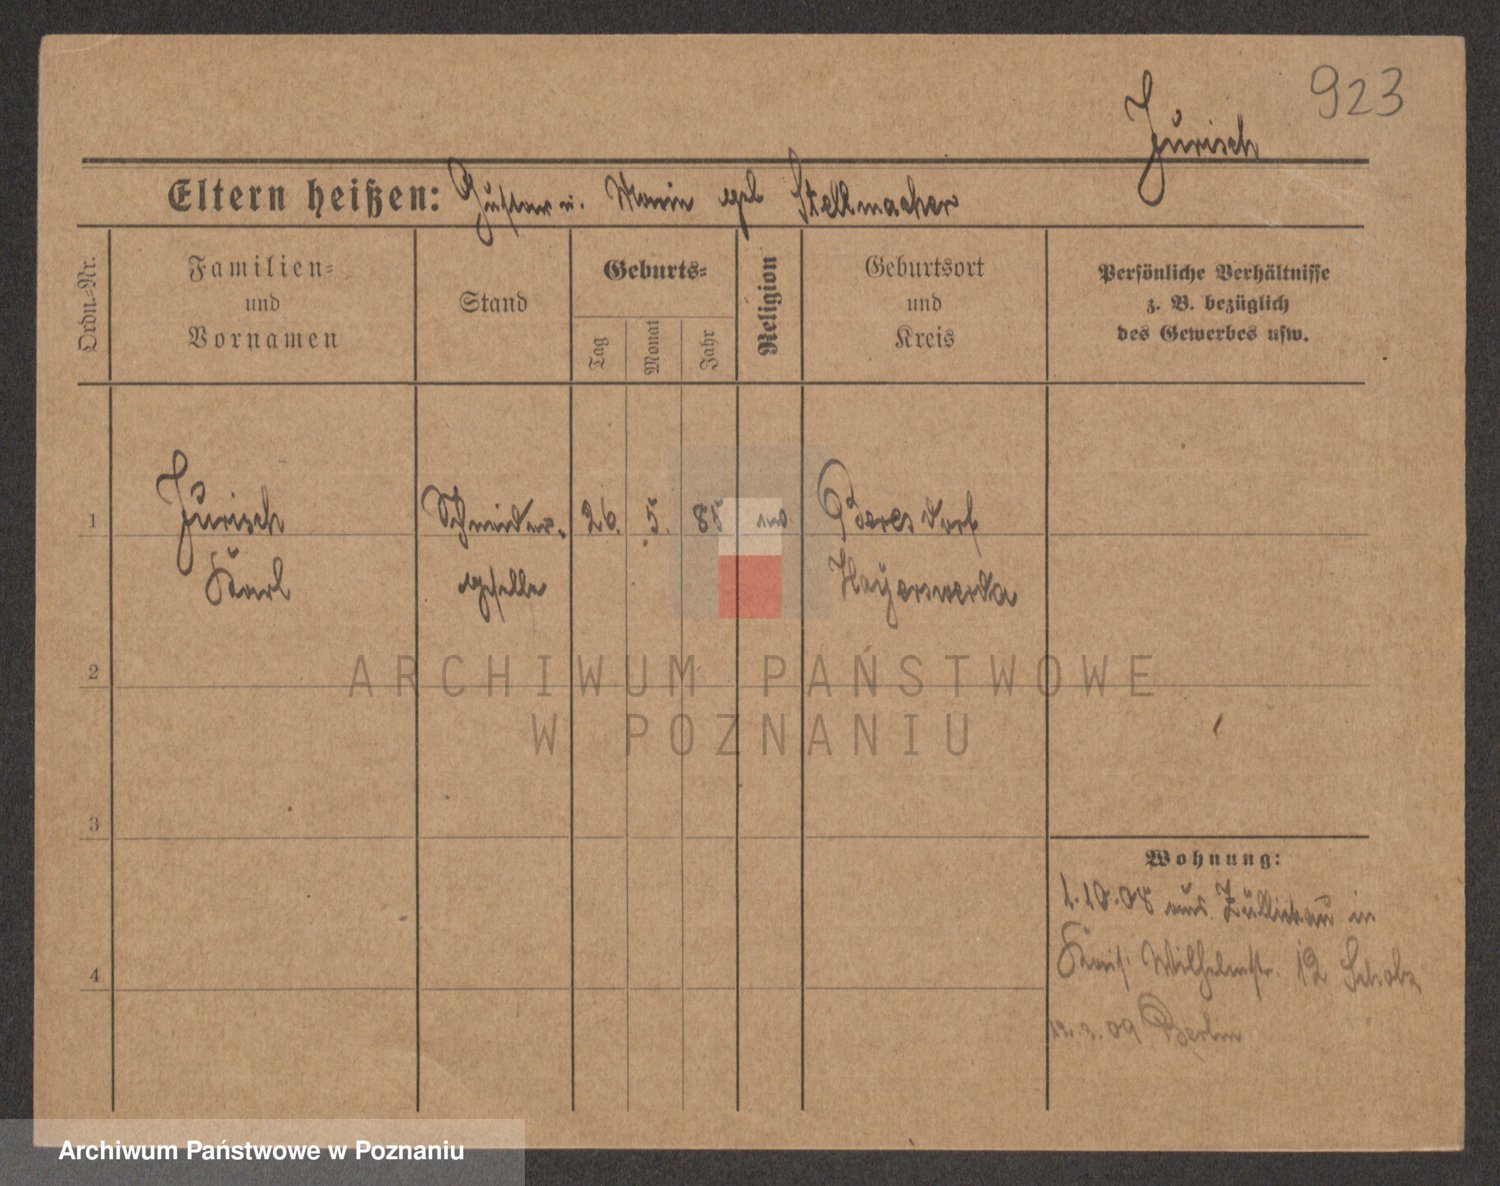 923
Jurisch
Eltern heißen: Gustav u. Marie geb Stellmacher
Ordn.=Nr.
Familien=
und
Vornamen
Stand
Geburts=
Tag
Monat
Jahr
Religion
Geburtsort
und
Kreis
Persönliche Verhältnisse
z. B. bezüglich
des Gewerbes usw.
1
Jurisch
Karl
Schneider-
geselle
26. 5. 85 ev.
Bercsdorf
Hoyerswerda
2
3
4
Wohnung:
1.10.08 aus Züllichau in
Kais. Wilhelmstr. 12 Scholz
09 Berlin
ARCHIWUM PAŃSTWOWE
W POZNANIU
Archiwum Państwowe w Poznaniu